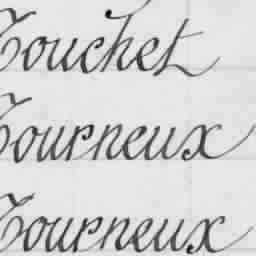 Touchet
Tourneux
Tourneux